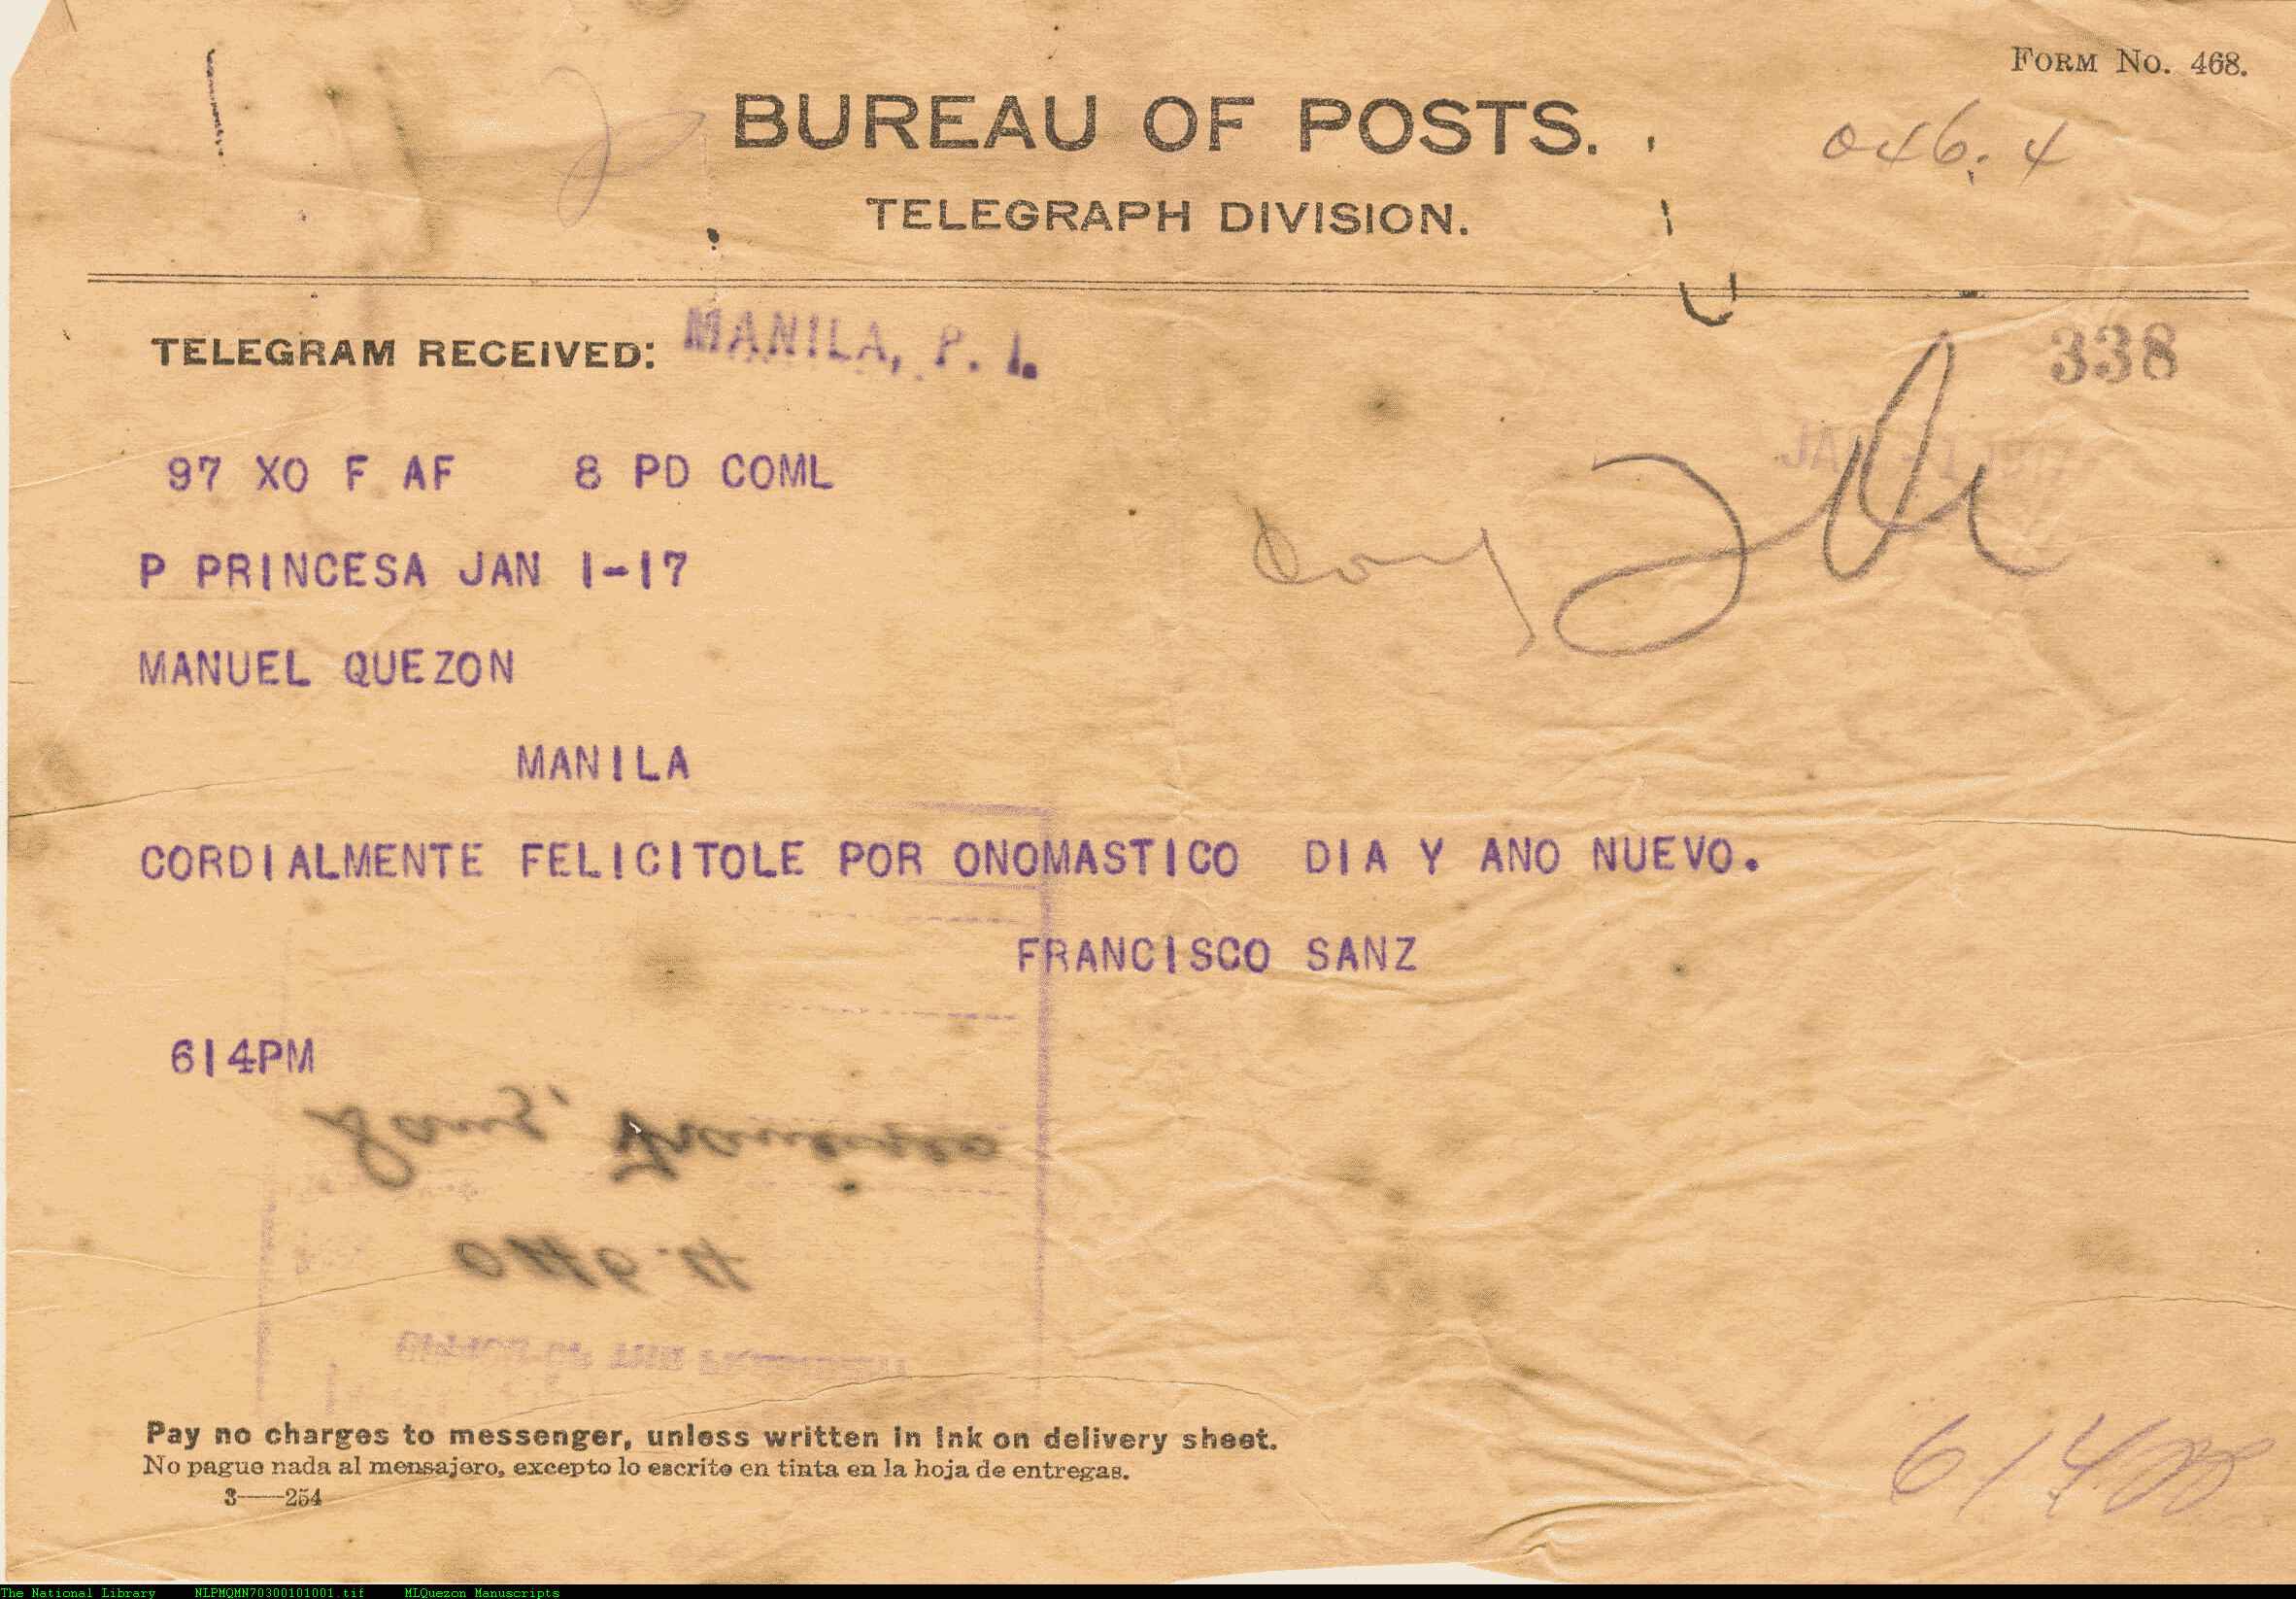 FORM No. 468.
BUREAU OF POSTS.
046.4
TELEGRAPH DIVISION.
TELEGRAM RECEIVED: MANILA, P. I.
338
JAN -1 1917
97 XO F AF 8 PD COML
P PRINCESA JAN 1-17
MANUEL QUEZON
MANILA
CORDIALMENTE FELICITOLE POR ONOMASTICO DIA Y ANO NUEVO.
FRANCISCO SANZ
614PM
Pay no charges to messenger, unless written in ink on delivery sheet.
No pague nada al mensajero, excepto lo escrito en tinta en la hoja de entregas.
3—254
614
The National Library NLPMQMN70300101001.tif MLQuezon Manuscripts